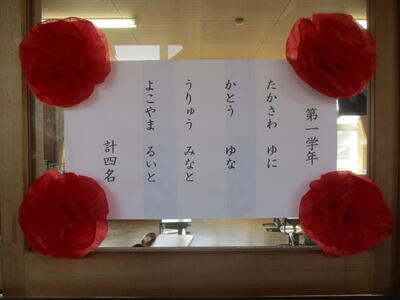 第一学年
たかさわ ゆに
かとう ゆな
うりゅう みなと
よこやま るいと
計四名